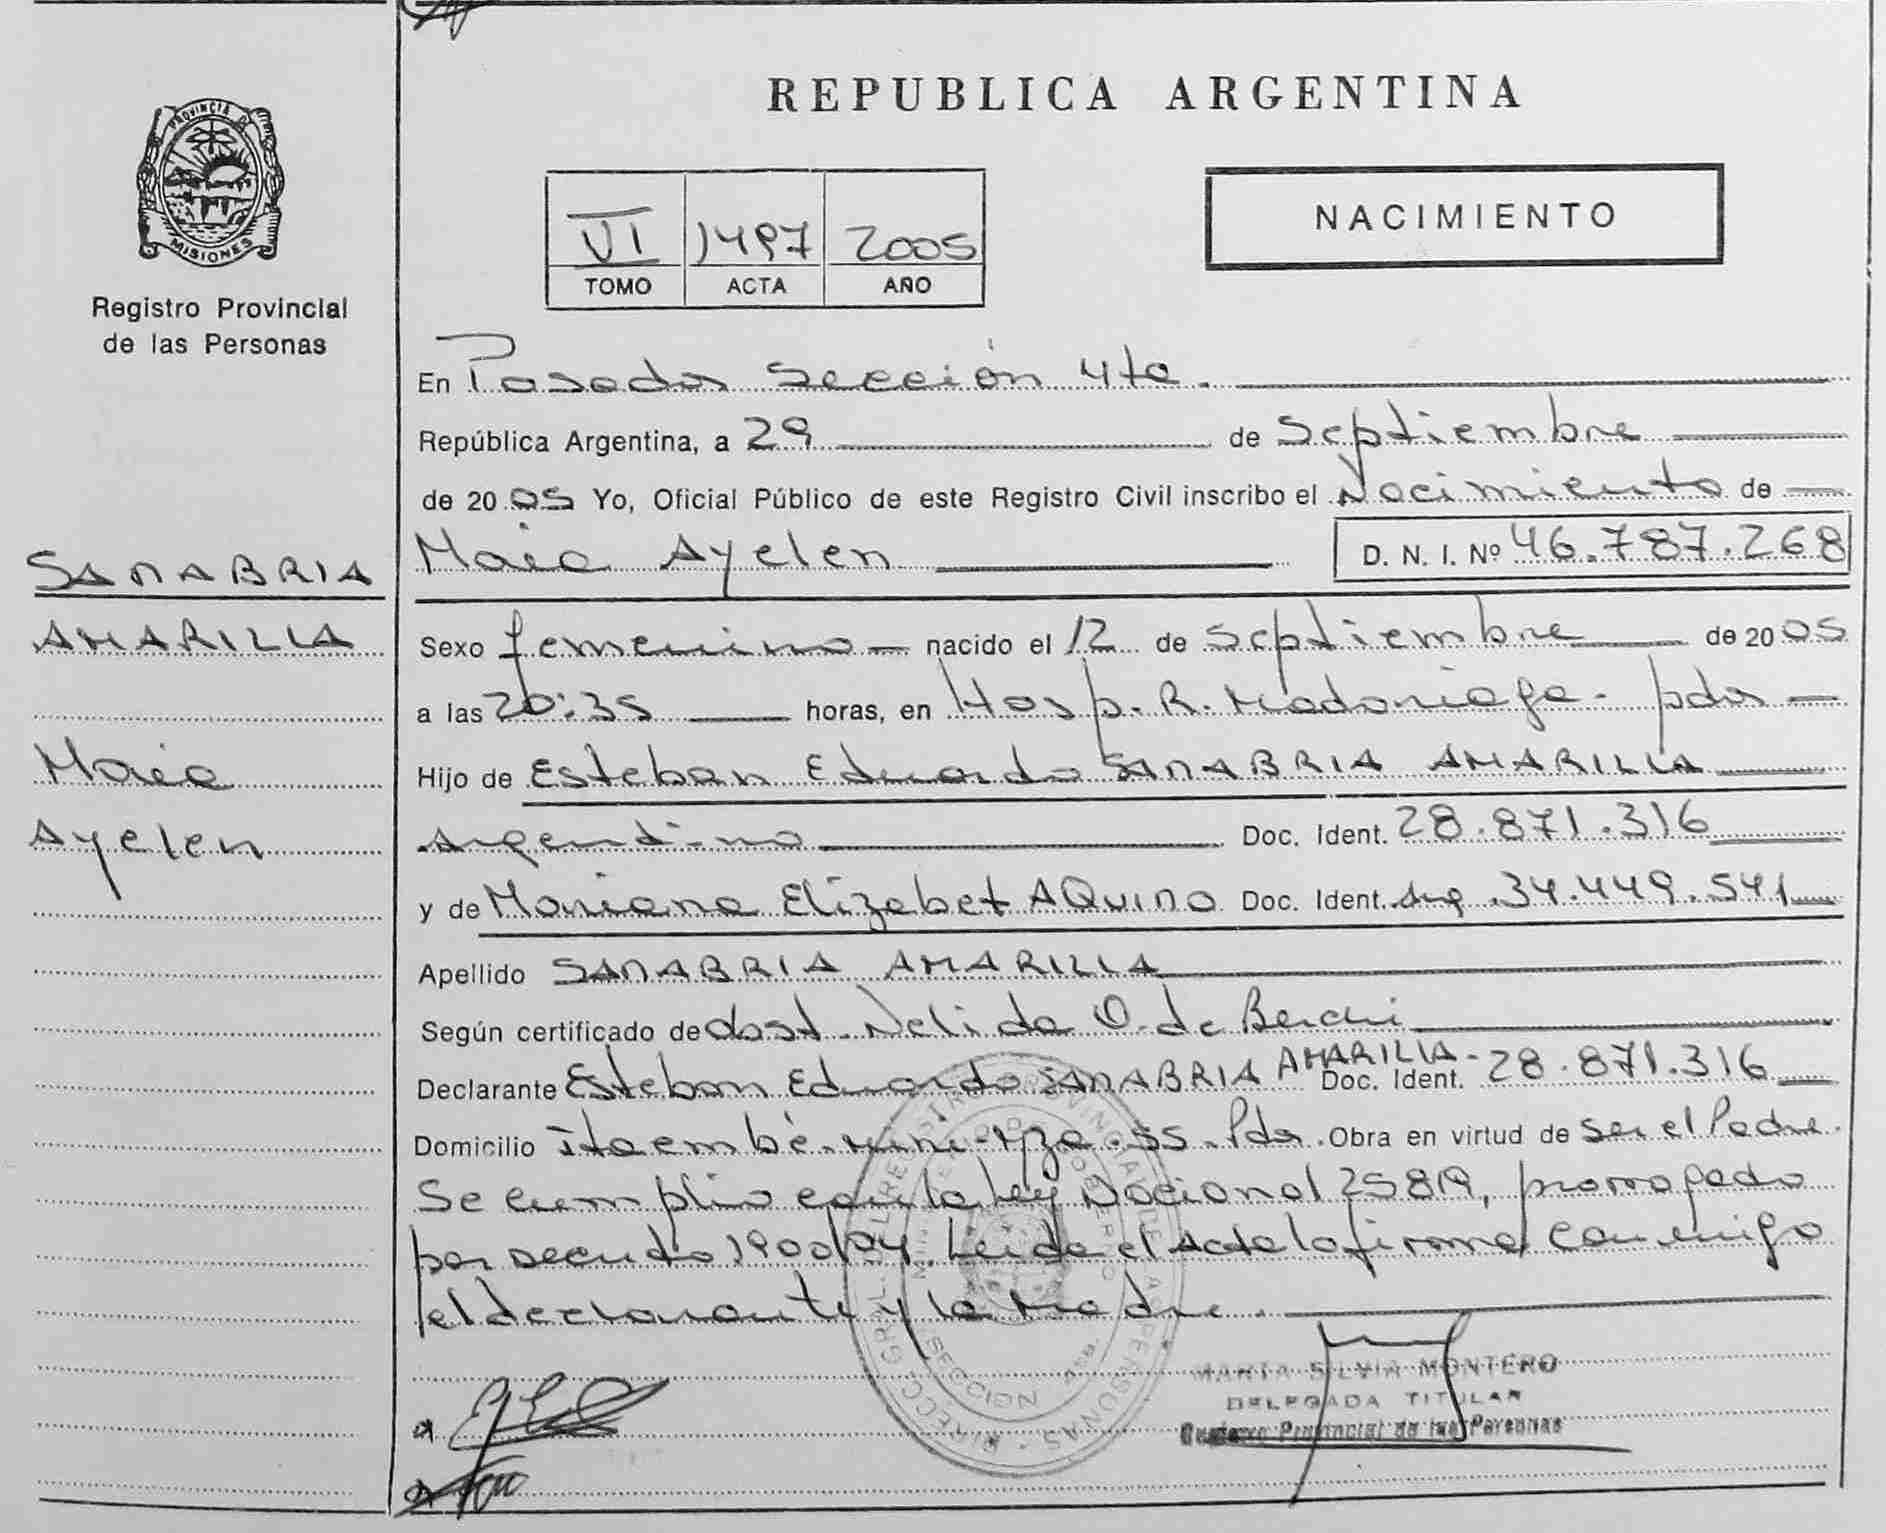 REPUBLICA ARGENTINA
PROVINCIA D
MISIONES
Registro Provincial
de las Personas
VI 1497 2005
TOMO ACTA AÑO
NACIMIENTO
En Posadas Sección 4ta.
República Argentina, a 29 de Septiembre
de 2005 Yo, Oficial Público de este Registro Civil inscribo el Nacimiento de
Maia Ayelen D. N. I. Nº 46.787.268
SANABRIA
AMARILLA
Maia
Ayelen
Sexo femenino nacido el 12 de Septiembre de 2005
a las 20:35 horas, en Hosp. R. Madariaga - pdas
Hijo de Esteban Eduardo SANABRIA AMARILLA
Argentino Doc. Ident. 28.871.316
y de Mariana Elizabet AQUINO Doc. Ident. Arg. 34.449.541
Apellido SANABRIA AMARILLA
Según certificado de obst. Nelida O. de
Declarante Esteban Eduardo SANABRIA AMARILLA - Doc. Ident. 28.871.316
Domicilio Itaembé-mini-Mza. 55. Pdas. Obra en virtud de ser el Padre.
Se cumplio con la Ley Nacional 25819, prorrogado
por decreto 1900/04. Leida el Acta la firma conmigo
el declarante y la Madre.
MARTA SILVIA MONTERO
DELEGADA TITULAR
Provincial de las Personas
SECCION